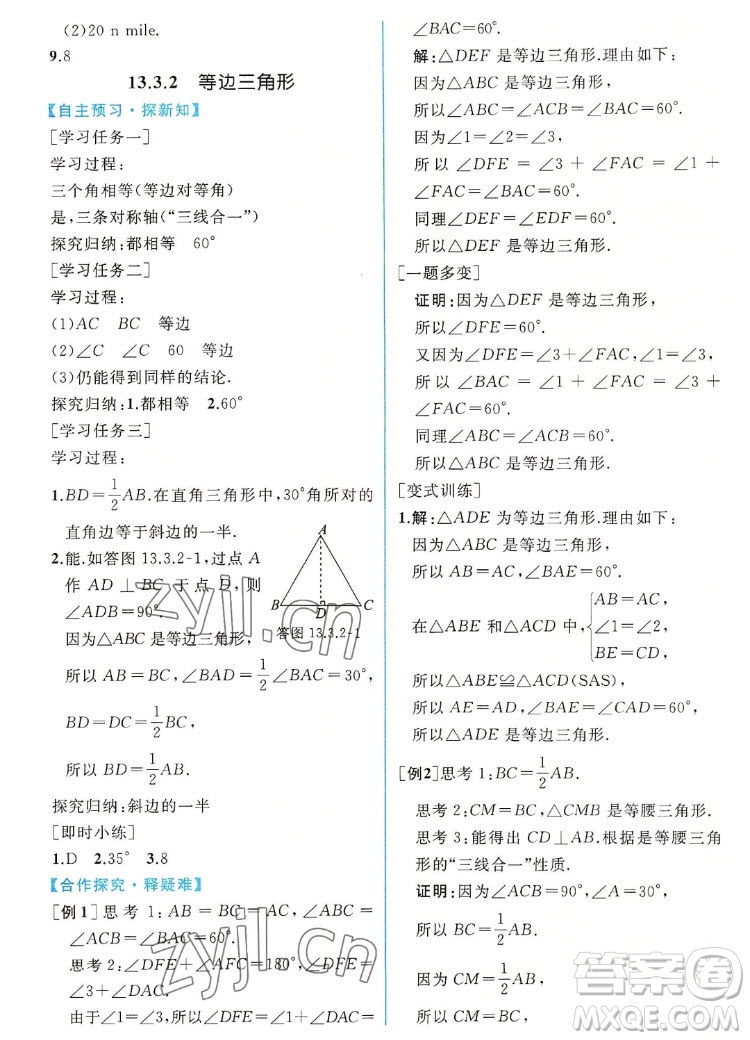 (2)20 n mile.
9.8
13.3.2 等边三角形
【自主预习·探新知】
[学习任务一]
学习过程:
三个角相等(等边对等角)
是,三条对称轴(“三线合一”)
探究归纳:都相等 60°
[学习任务二]
学习过程:
(1)AC BC 等边
(2)∠C ∠C 60 等边
(3)仍能得到同样的结论.
探究归纳:1.都相等 2.60°
[学习任务三]
学习过程:
1.BD=1/2AB.在直角三角形中,30°角所对的
直角边等于斜边的一半.
2.能.如答图 13.3.2-1,过点 A
作 AD⊥BC 于点 D,则
∠ADB=90°.
因为△ABC 是等边三角形,
所以 AB=BC,∠BAD=1/2∠BAC=30°,
BD=DC=1/2BC,
所以 BD=1/2AB.
A
B
D
C
答图 13.3.2-1
探究归纳:斜边的一半
[即时小练]
1.D 2.35° 3.8
【合作探究·释疑难】
[例1]思考 1:AB=BC=AC,∠ABC=
∠ACB=∠BAC=60°.
思考 2:∠DFE+∠AFC=180°,∠DFE=
∠3+∠DAC.
由于∠1=∠3,所以∠DFE=∠1+∠DAC=
∠BAC=60°.
解:△DEF 是等边三角形.理由如下:
因为△ABC 是等边三角形,
所以∠ABC=∠ACB=∠BAC=60°.
因为∠1=∠2=∠3,
所以∠DFE=∠3+∠FAC=∠1+
∠FAC=∠BAC=60°.
同理∠DEF=∠EDF=60°.
所以△DEF 是等边三角形.
[一题多变]
证明:因为△DEF 是等边三角形,
所以∠DFE=60°.
又因为∠DFE=∠3+∠FAC,∠1=∠3,
所以∠BAC=∠1+∠FAC=∠3+
∠FAC=60°.
同理∠ABC=∠ACB=60°.
所以△ABC 是等边三角形.
[变式训练]
1.解:△ADE 为等边三角形.理由如下:
因为△ABC 是等边三角形,
所以 AB=AC,∠BAE=60°.
在△ABE 和△ACD 中,
AB=AC,
∠1=∠2,
BE=CD,
所以△ABE≌△ACD(SAS),
所以 AE=AD,∠BAE=∠CAD=60°,
所以△ADE 是等边三角形.
[例2]思考 1:BC=1/2AB.
思考 2:CM=BC,△CMB 是等腰三角形.
思考 3:能得出 CD⊥AB.根据是等腰三角
形的“三线合一”性质.
证明:因为∠ACB=90°,∠A=30°,
所以 BC=1/2AB.
因为 CM=1/2AB,
所以 CM=BC.
zyjl.cn
zyjl.cn
答案卷
MXQE.COM